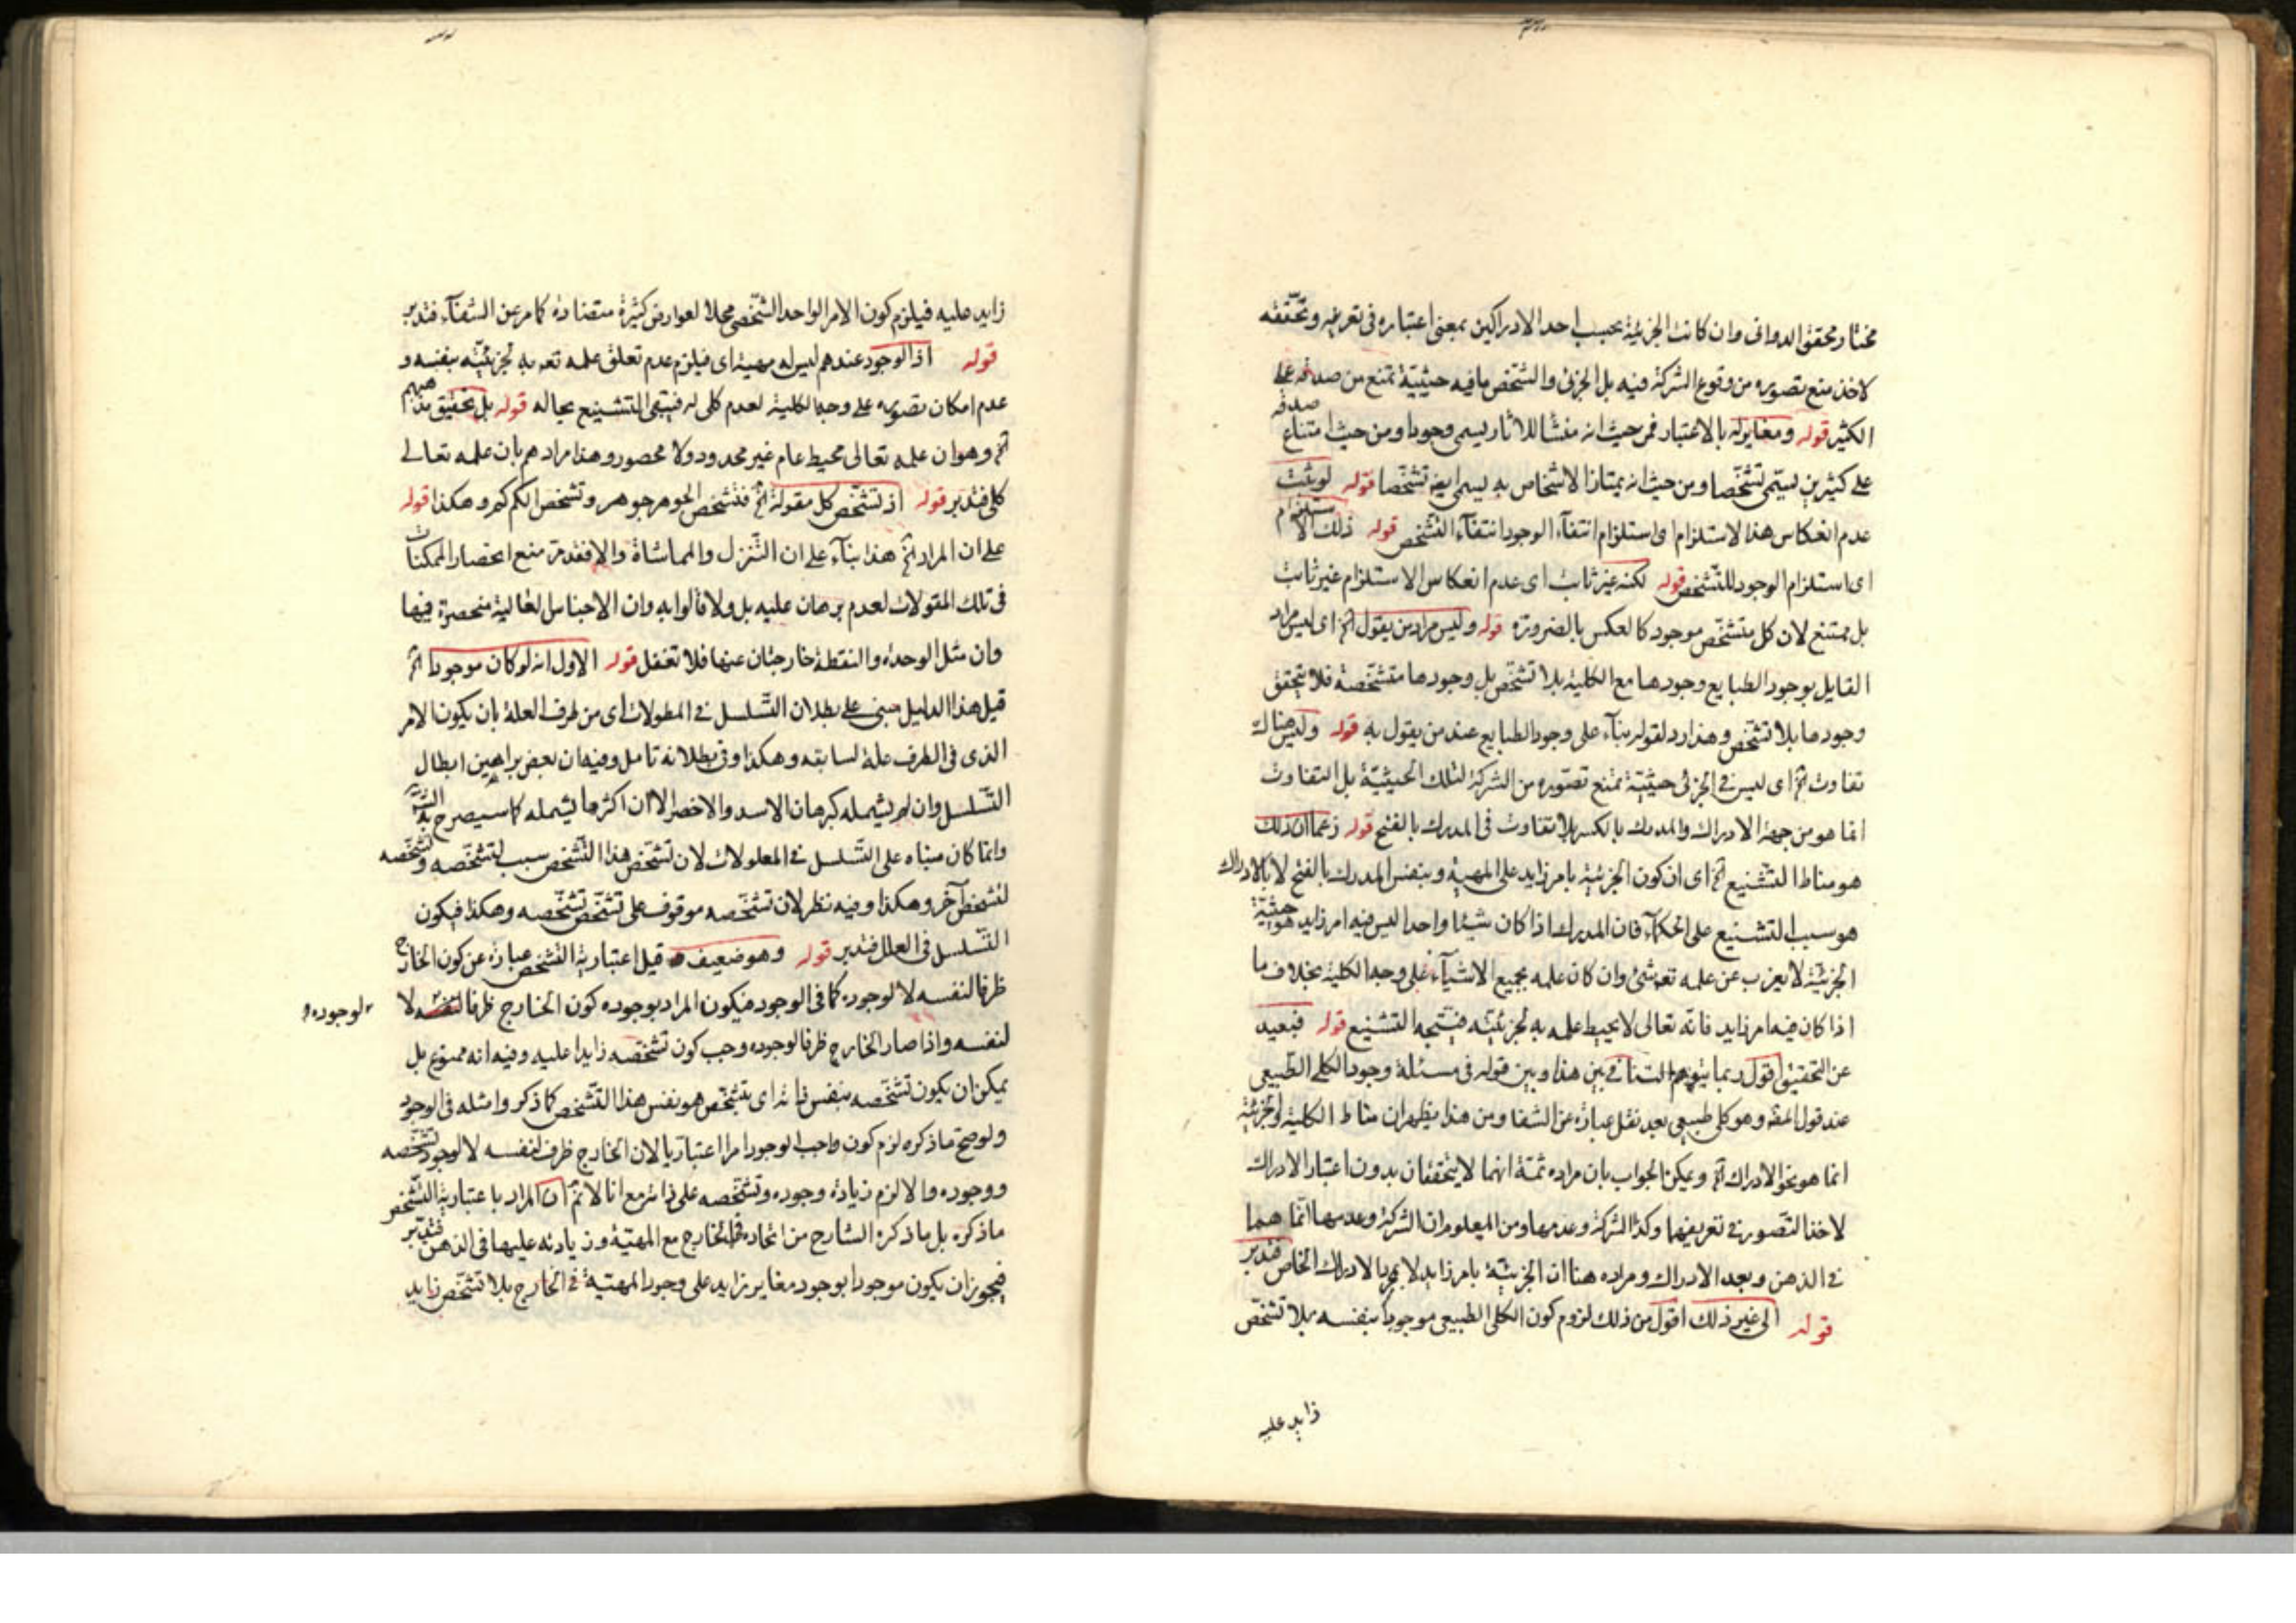 مختار محقق الدواني وان كانت الجزئية بحسب احد الادراكين بمعنى اعتباره في تعريفه وتحققه
لاخذ منع تصوره من وقوع الشركة فيه بل الجزئى والتشخص ما فيه حيثية تمنع من صدقه على
الكثير قوله ومغاير له بالاعتبار فمن حيث انه منشأ للاثار يسمى وجودا ومن حيث امتناع صدقه
على كثيرين يسمى تشخصا ومن حيث انه يمتاز الاشخاص به يسمى ايضا تشخصا قوله لو ثبت
عدم انعكاس هذا الاستلزام اى استلزام انتفاء الوجود انتفاء التشخص قوله ذلك الاستلزام
اى استلزام الوجود للتشخص قوله لكنه غير ثابت اى عدم انعكاس الاستلزام غير ثابت
بل ممتنع لان كل متشخص موجود كالعكس بالضرورة قوله وليس مراد من يقول الخ اى ليس مراد
القايل بوجود الطبايع وجودها مع الكلية بلا تشخص بل وجودها متشخصة فلا يتحقق
وجودها بلا تشخص وهذا رد لقوله بناء على وجود الطبايع عند من يقول به قوله وليس هناك
تفاوت الخ اى ليس في الجزئى حيثية تمنع تصوره من الشركة لتلك الحيثية بل التفاوت
انما هو من جهة الادراك والمدرك بالكسر بلا تفاوت في المدرك بالفتح قوله زعما ان ذلك
هو مناط التشنيع الخ اى ان كون الجزئية بامر زايد على المهية وبنفس المدرك بالفتح لا بالادراك
هو سبب التشنيع على الحكماء فان المدرك اذا كان شيئا واحدا ليس فيه امر زايد هو حيثية
الجزئية لا يعزب عن علمه تعه شئ وان كان علمه بجميع الاشياء على وجه الكلية بخلاف ما
اذا كان فيه امر زايد فانه تعالى لا يحيط علمه به لجزئيته فيتجه التشنيع قوله فبعيد
عن التحقيق اقول ربما يتوهم التنافي بين هذا وبين قوله في مسئلة وجود الكلى الطبيعى
عند قول المصه وهو كلى طبيعى بعد نقل عبارة عن الشفا ومن هذا يظهر ان مناط الكلية والجزئية
انما هو نحو الادراك الخ ويمكن الجواب بان مراده ثمة انهما لا يتحققان بدون اعتبار الادراك
لاخذ التصور في تعريفهما وكذا الشركة وعدمها ومن المعلوم ان الشركة وعدمها انما هما
في الذهن وبعد الادراك ومراده هنا ان الجزئية بامر زايد لا بمجرد الادراك الخاص فتدبر
قوله الى غير ذلك اقول من ذلك لزوم كون الكلى الطبيعى موجودا بنفسه بلا تشخص
زايد عليه
زايد عليه فيلزم كون الامر الواحد الشخصى محلا لعوارض كثيرة متضادة كما مر عن الشفاء فتدبر
قوله اذ الوجود عندهم ليس له مهية اى فيلزم عدم تعلق علمه تعه به لجزئيته بنفسه و
عدم امكان تصوره على وجه الكلية لعدم كلى له فيبقى التشنيع بحاله قوله بل تحقيق مذهبهم
الخ وهو ان علمه تعالى محيط عام غير محدود ولا محصور وهذا مرادهم بان علمه تعالى
كلى فتدبر قوله اذ تشخص كل مقولة الخ فتشخص الجوهر جوهر وتشخص الكم كم وهكذا قوله
على ان المراد الخ هذا بناء على ان التنزل والمماشاة والا فقد مر منع انحصار الممكنات
في تلك المقولات لعدم برهان عليه بل ولا قالوا به وان الاجناس العالية منحصرة فيها
وان مثل الوحدة والنقطة خارجتان عنها فلا تغفل قوله الاول انه لو كان موجودا الخ
قيل هذا الدليل مبنى على بطلان التسلسل في المعلولات اى من طرف العلة بان يكون الامر
الذى في الطرف علة لسابقه وهكذا وفي بطلانه تامل وفيه ان بعض براهين ابطال
التسلسل وان لم يشمله كبرهان الاسد والاخصر الا ان اكثرها يشمله كما سيصرح به
وانما كان مبناه على التسلسل في المعلولات لان تشخص هذا التشخص سبب لتشخصه وتشخصه
لتشخص آخر وهكذا وفيه نظر لان تشخصه موقوف على تشخص تشخصه وهكذا فيكون
التسلسل في العلل فتدبر قوله وهو ضعيف قيل اعتبارية التشخص عبارة عن كون الخارج
ظرفا لنفسه لا لوجوده كما في الوجود فيكون المراد بوجوده كون الخارج ظرفا لا
لوجوده
لنفسه واذا صار الخارج ظرفا لوجوده وجب كون تشخصه زايدا عليه وفيه انه ممنوع بل
يمكن ان يكون تشخصه بنفس ذاته اى بتشخص هو نفس هذا التشخص كما ذكر وامثله في الوجود
ولو صح ما ذكره لزم كون واجب الوجود امرا اعتباريا لان الخارج ظرف لنفسه لا لوجود تشخصه
ووجوده والا لزم زيادة وجوده وتشخصه على ذاته مع انا لا نم ان المراد باعتبارية التشخص
ما ذكره بل ما ذكره الشارح من اتحاده في الخارج مع المهية وزيادته عليها في الذهن فتدبر
فيجوز ان يكون موجودا بوجود مغاير زايد على وجود المهية في الخارج بلا تشخص زايد